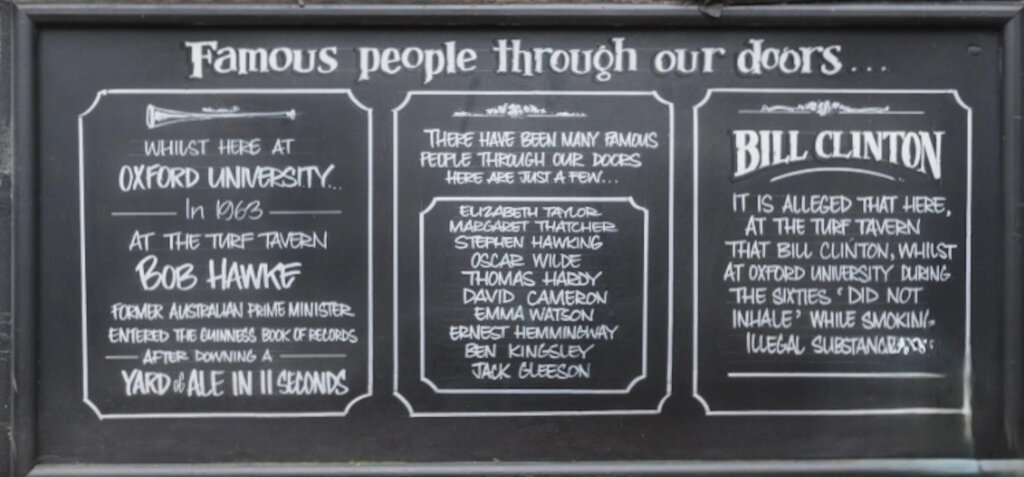 Famous people through our doors...
WHILST HERE AT
OXFORD UNIVERSITY...
In 1963
AT THE TURF TAVERN
BOB HAWKE
FORMER AUSTRALIAN PRIME MINISTER
ENTERED THE GUINNESS BOOK OF RECORDS
AFTER DOWNING A
YARD of ALE IN 11 SECONDS
THERE HAVE BEEN MANY FAMOUS
PEOPLE THROUGH OUR DOORS
HERE ARE JUST A FEW...
ELIZABETH TAYLOR
MARGARET THATCHER
STEPHEN HAWKING
OSCAR WILDE
THOMAS HARDY
DAVID CAMERON
EMMA WATSON
ERNEST HEMMINGWAY
BEN KINGSLEY
JACK GLEESON
BILL CLINTON
IT IS ALLEGED THAT HERE,
AT THE TURF TAVERN
THAT BILL CLINTON, WHILST
AT OXFORD UNIVERSITY DURING
THE SIXTIES 'DID NOT
INHALE' WHILE SMOKING
ILLEGAL